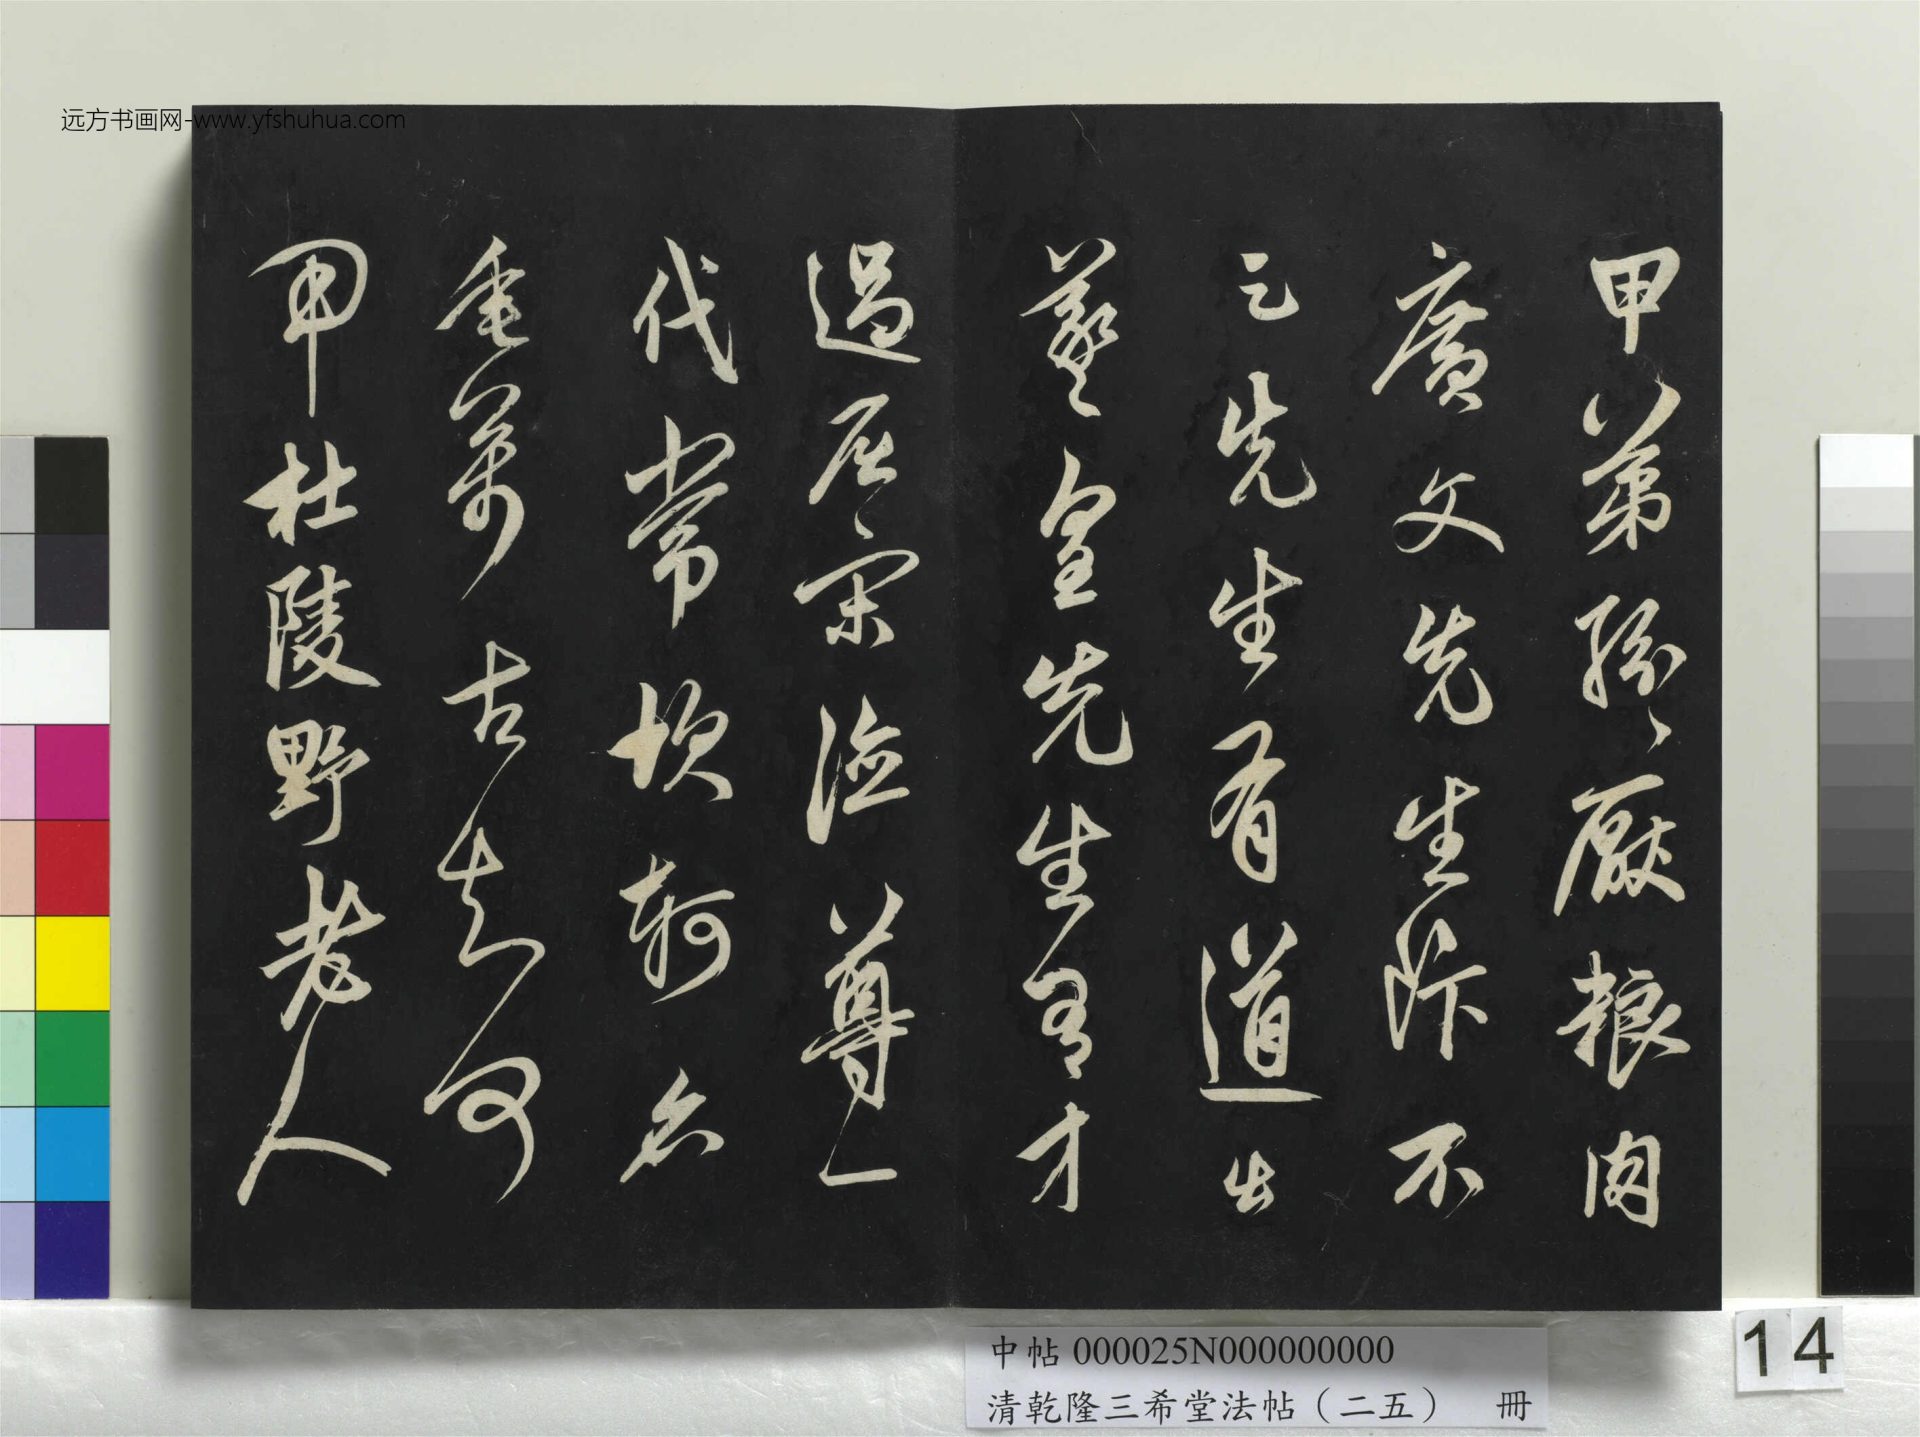 远方书画网-www.yfshuhua.com
甲第紛々厭粮肉
廣文先生飯不
足先生有道出
羲皇先生有才
過屈宋德尊一
代常坎軻名
垂萬古知何
用杜陵野老人
中帖 000025N000000000
清乾隆三希堂法帖(二五) 冊
14